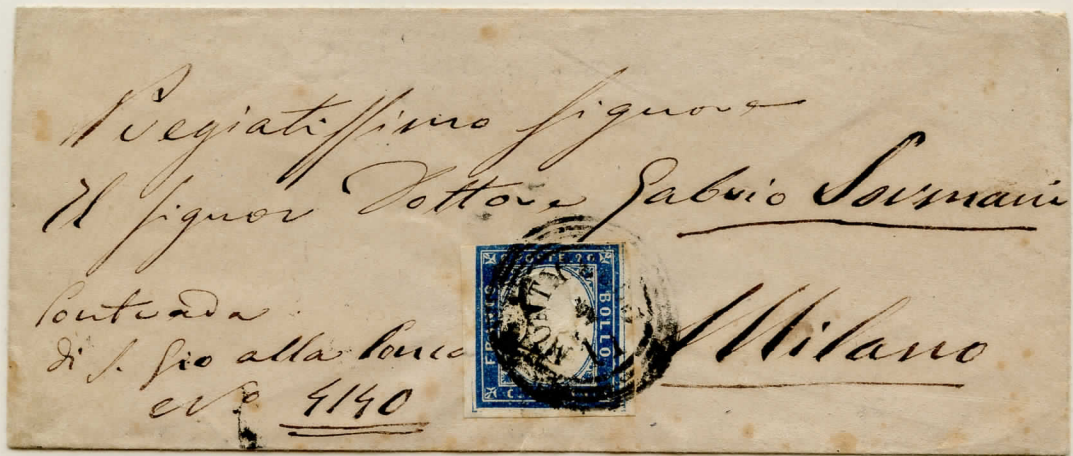 Pregiatissimo Signore
Il Signor Dottore Gabrio Sormani
Contrada
di S. Gio alla Conca
N° 4140
Milano
POSTE 20
FRANCO
BOLLO
C.